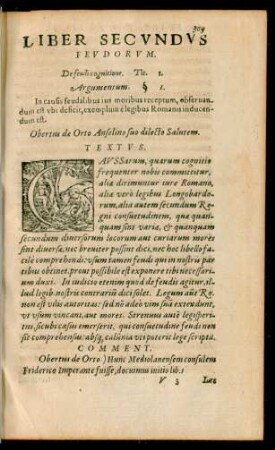 309
LIBER SECVNDVS
FEVDORVM.
De feudi cognitione. Tit. 1.
Argumentum. § 1.
In causis feudalibus ius moribus receptum, obseruan-
dum est vbi deficit, exemplum è legibus Romanis inducen-
dum est.
Obertus de Orto Anselmo suo dilecto Salutem.
TEXTVS.
CAVSSarum, quarum cognitio
frequenter nobis committitur,
alia dirimuntur iure Romano,
alia verò legibus Longobardo-
rum, alia autem secundum Re-
gni consuetudinem, quæ quan-
quam sint varia, & quanquam
secundum diuersorum locorum aut curiarum mores
sint diuersa, nec breuiter possint dici, nec libello fa-
cile comprehendi: vsum tamen feudi qui in nostris par-
tibus obtinet, prout possibile est exponere tibi necessarium
duxi. In iudicio etenim quod de feudis agitur, il-
lud legib. nostris contrarium dici solet. Legum autē Ro-
man. est vilis autoritas: sed nō adeò vim suā extendunt,
vt vsum vincant, aut mores. Strenuus autē legisperi-
tus, sicubi casus emerserit, qui consuetudine feudi non
sit comprehensus: absq; calūnia vti poterit lege scripta.
COMMENT.
Obertus de Orto.) Hunc Mediolanensem consulem
Friderico Imperante fuisse, docuimus initio lib. 1
V 3